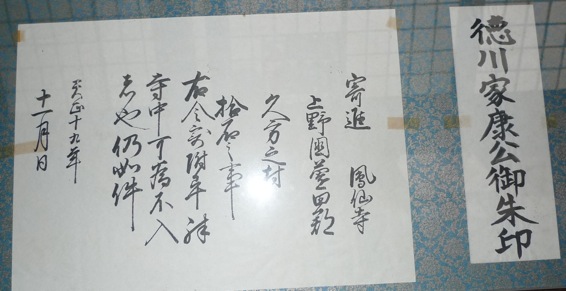 徳川家康公御朱印
寄進 鳳仙寺
上野国薗田郡
久方之村
拾石之事
右令寄附畢殊
寺中可為不入
者也仍如件
天正十九年
十一月日